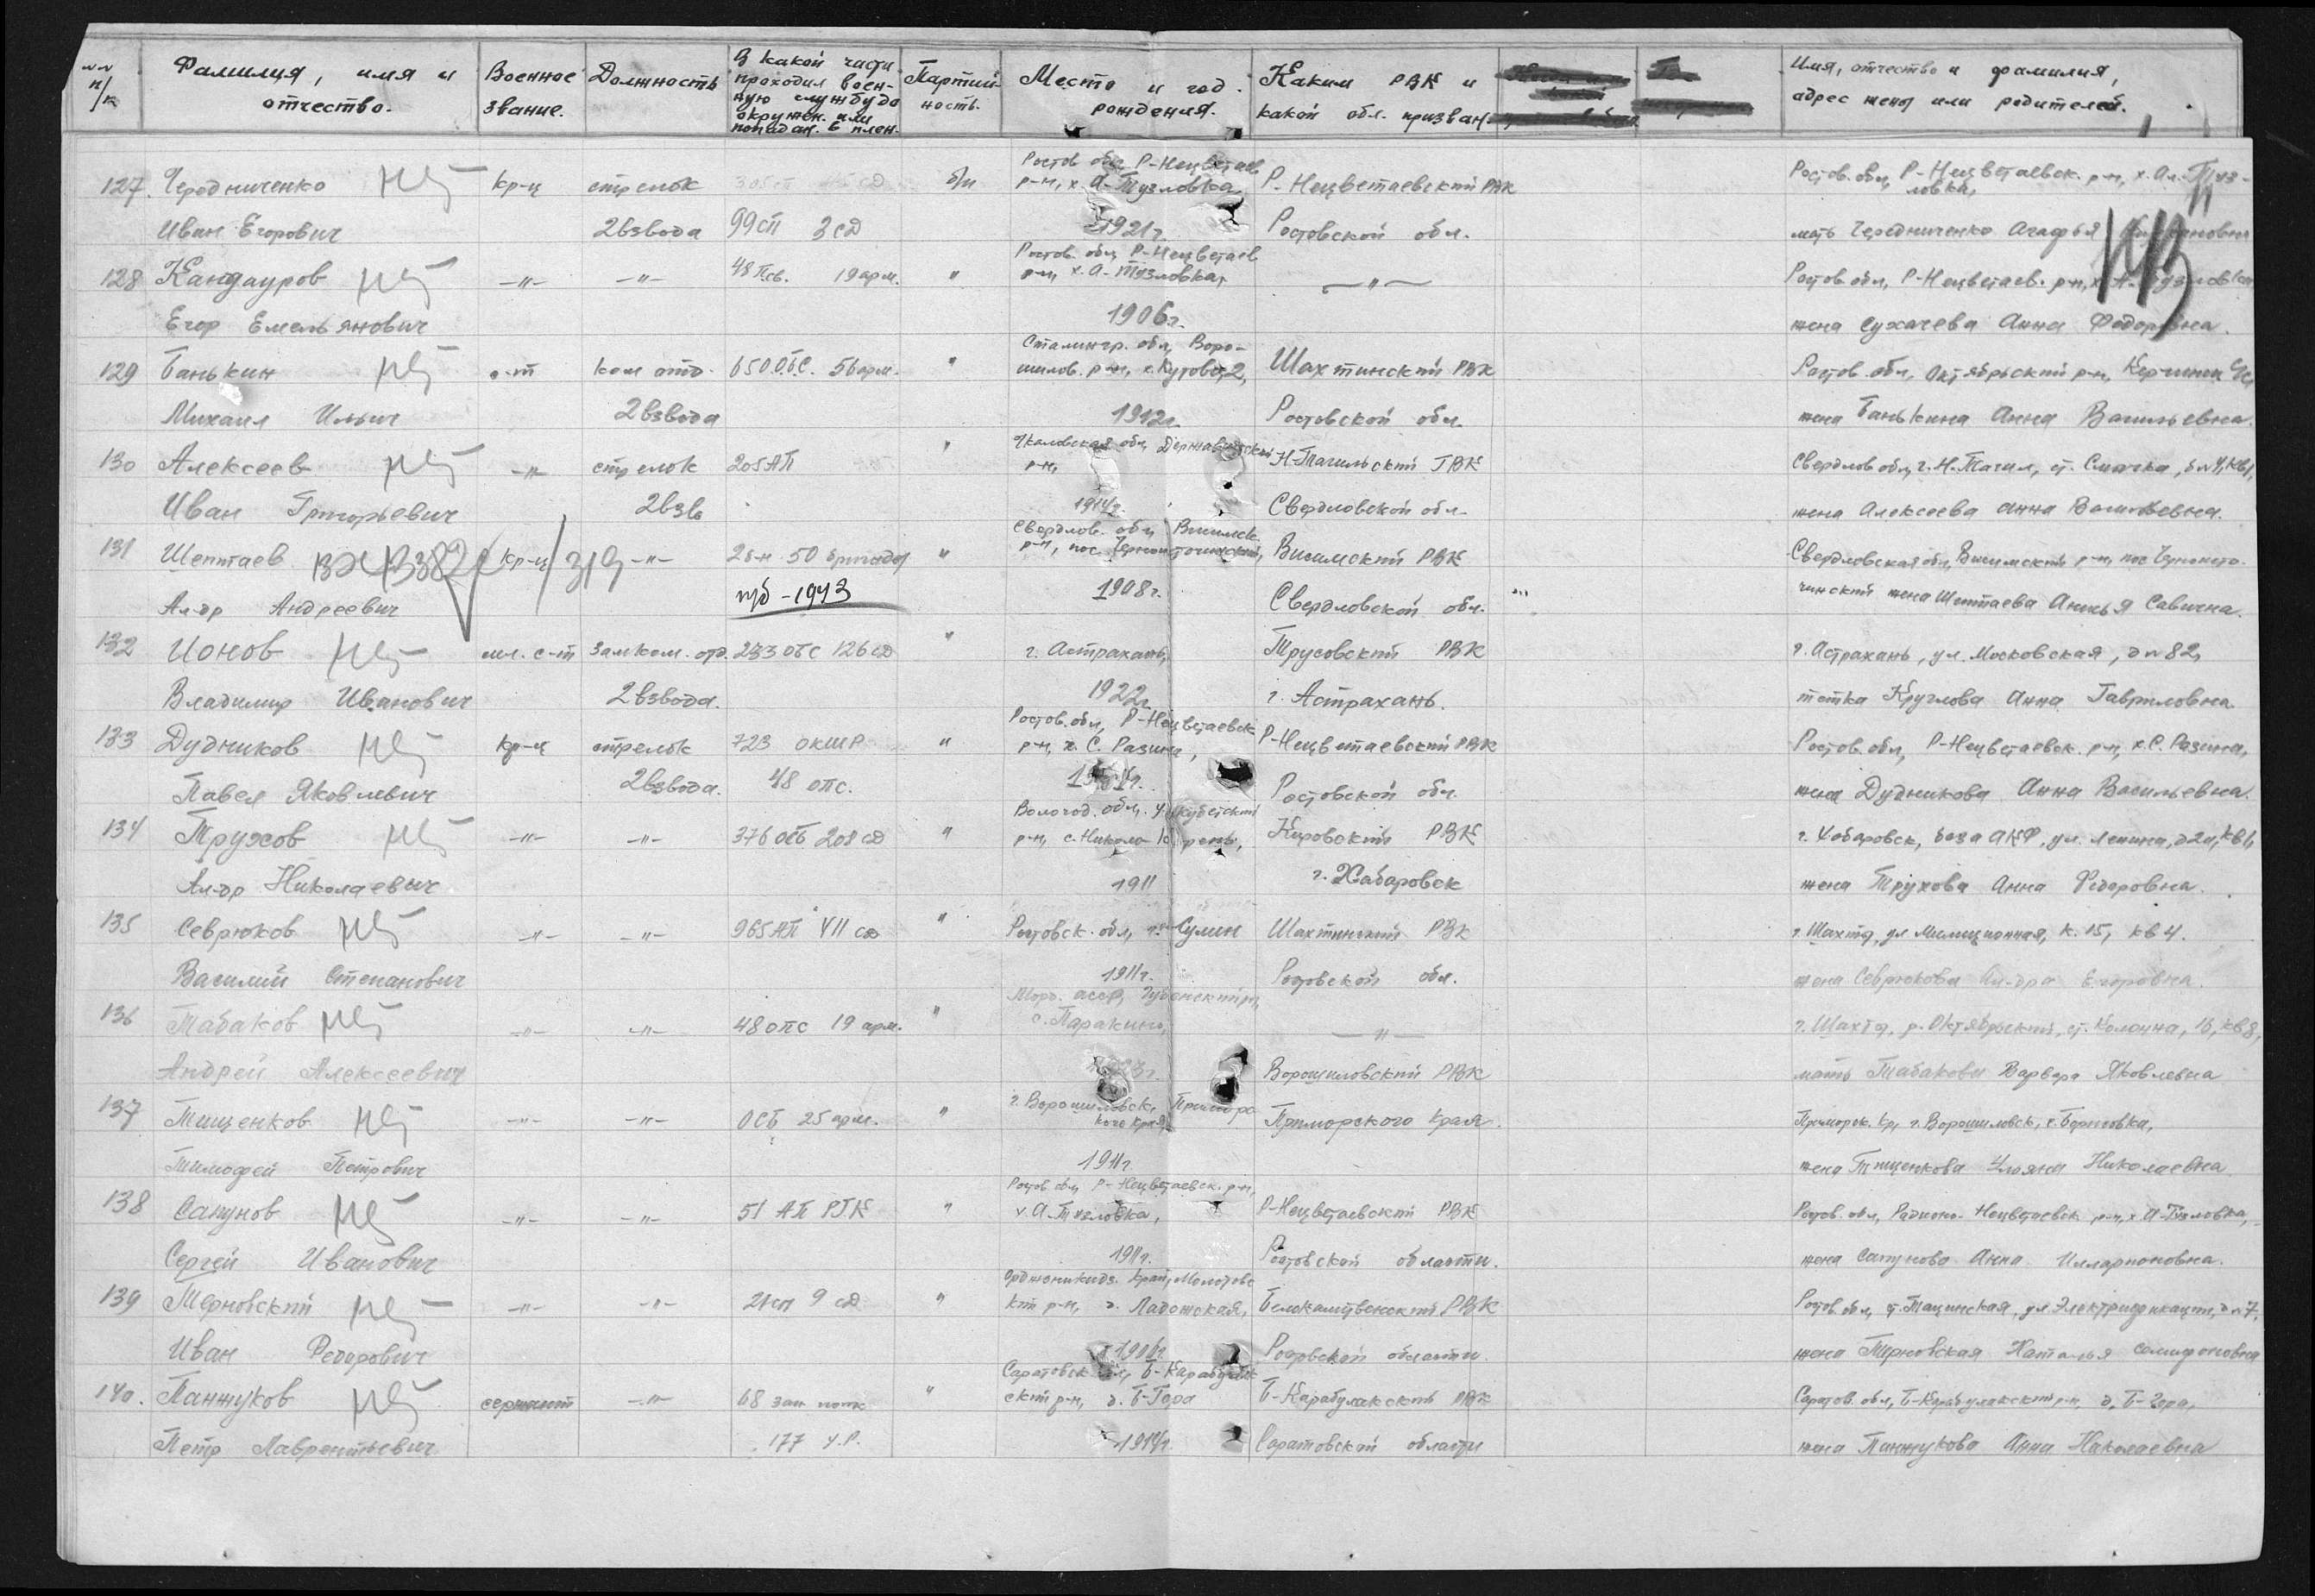 №№ п/к
Фамилия, имя и отчество.
Военное звание.
Должность
В какой части проходил военную службу до окружен. или попадан. в плен.
Партийность.
Место и год рождения.
Каким РВК и какой обл. призван.
Имя, отчество и фамилия, адрес жены или родителей.
127. Чередниченко НЕТ кр-ц стрелок б/п Ростов обл, Р-Несветаев р-н, х. А-Тузловка, Р-Несветаевский РВК Ростов. обл, Р-Несветаевск. р-н, х. Ал-Тузловка,
Иван Егорович 2взвода 99сп 3сд 1921г. Ростовской обл. мать Чередниченко Агафья
128 Кандауров НЕТ -"- -"- 48 19арм. " Ростов. обл, Р-Несветаев р-н, х. А-Тузловка, -"- Ростов. обл, Р-Несветаев. р-н, х. А-Тузловка
Егор Емельянович 1906г. жена Сухачева Анна Федоровна.
129 Банькин НЕТ с-т ком отд. 650 ОБС. 56арм. " Сталингр. обл, Ворошилов. р-н, х. Шахтинский РВК Ростов. обл, Октябрьский р-н,
Михаил Ильич 2взвода 1912г. Ростовской обл. жена Банькина Анна Васильевна.
130 Алексеев НЕТ -"- стрелок 205АП " Чкаловская обл, р-н, Н-Тагильский ГВК Свердлов обл, г. Н. Тагил, ст. Смычка,
Иван Григорьевич 2взв 1914г. Свердловской обл. жена Алексеева Анна Васильевна.
131 Шептаев кр-ц 319 -"- 2б-н 50 бригады " Свердлов. обл, Висимск. р-н, пос. Черноисточинский, Висимский РВК Свердловская обл, Висимский р-н, пос Черноисто-
Ал-др Андреевич 1943 1908г. Свердловской обл. чинский жена Шептаева Савична.
132 Ионов НЕТ мл. с-т Замком. отд. 233 обс 126 сд " г. Астрахань, Трусовский РВК г. Астрахань, ул. Московская, д №82,
Владимир Иванович 2взвода. 1922г. г. Астрахань. тетка Круглова Анна Гавриловна
133 Дудников НЕТ кр-ц стрелок 723 ОКШР " Ростов. обл, Р-Несветаевск р-н, х. С. Разина, Р-Несветаевский РВК Ростов. обл, Р-Несветаевск. р-н, х. С. Разина,
Павел Яковлевич 2взвода. 48 опс. Ростовской обл. жена Дудникова Анна Васильевна.
134 Трухов НЕТ -"- -"- 376 осб 208 сд " Вологод. обл, р-н, с. Николо- Кировский РВК г. Хабаровск, база АКФ, ул. Ленина,
Ал-др Николаевич 1911 г. Хабаровск жена Трухова Анна Федоровна.
135 Севрюков НЕТ -"- -"- 965 АП VII сд " Ростовск. обл, Сулин Шахтинский РВК г. Шахты, ул Милиционная, к. 15, кв 4.
Василий Степанович 1911г. Ростовской обл. жена Севрюкова Ал-дра Егоровна.
136 Табаков НЕТ -"- -"- 48 опс 19 арм. " Морд. асср, с. Паракино, -"- г. Шахты, р. Октябрьский, ст. Колонна, 16, кв 8,
Андрей Алексеевич Ворошиловский РВК мать Табакова Варвара Яковлевна
137 Тищенков НЕТ -"- -"- ОСБ 25 арм. " г. Ворошиловск, Приморского края, Приморского края. Приморск. кр, г. Ворошиловск, с. Борисовка,
Тимофей Петрович 1911г. жена Тищенкова Ульяна Николаевна
138 Сапунов НЕТ -"- -"- 51 АП РГК " Ростов обл, Р-Несветаевск. р-н, х. А-Тузловка, Р-Несветаевский РВК Ростов. обл, Радионо-Несветаевск р-н, х А-Тузловка,
Сергей Иванович 1911г. Ростовской области. жена Сапунова Анна Илларионовна.
139 Терновский НЕТ -"- -"- 21сп 9 сд " Орджоникидз. край, Молотовский р-н, Ладожская, Белокалитвенский РВК Ростов. обл, ст. Тацинская, ул. Электрификации, д №7,
Иван Федорович 1906г. Ростовской области жена Терновская Наталья
140. Панжуков НЕТ сержант -"- 68 зап полк " Саратовск обл, Б-Карабулакский р-н, д. Б-Гора Б-Карабулакский РВК Саратов. обл, Б-Карабулакский р-н, д. Б-Гора,
Петр Лаврентьевич 177 У.Р. 1914г. Саратовской области жена Панжукова Анна Николаевна